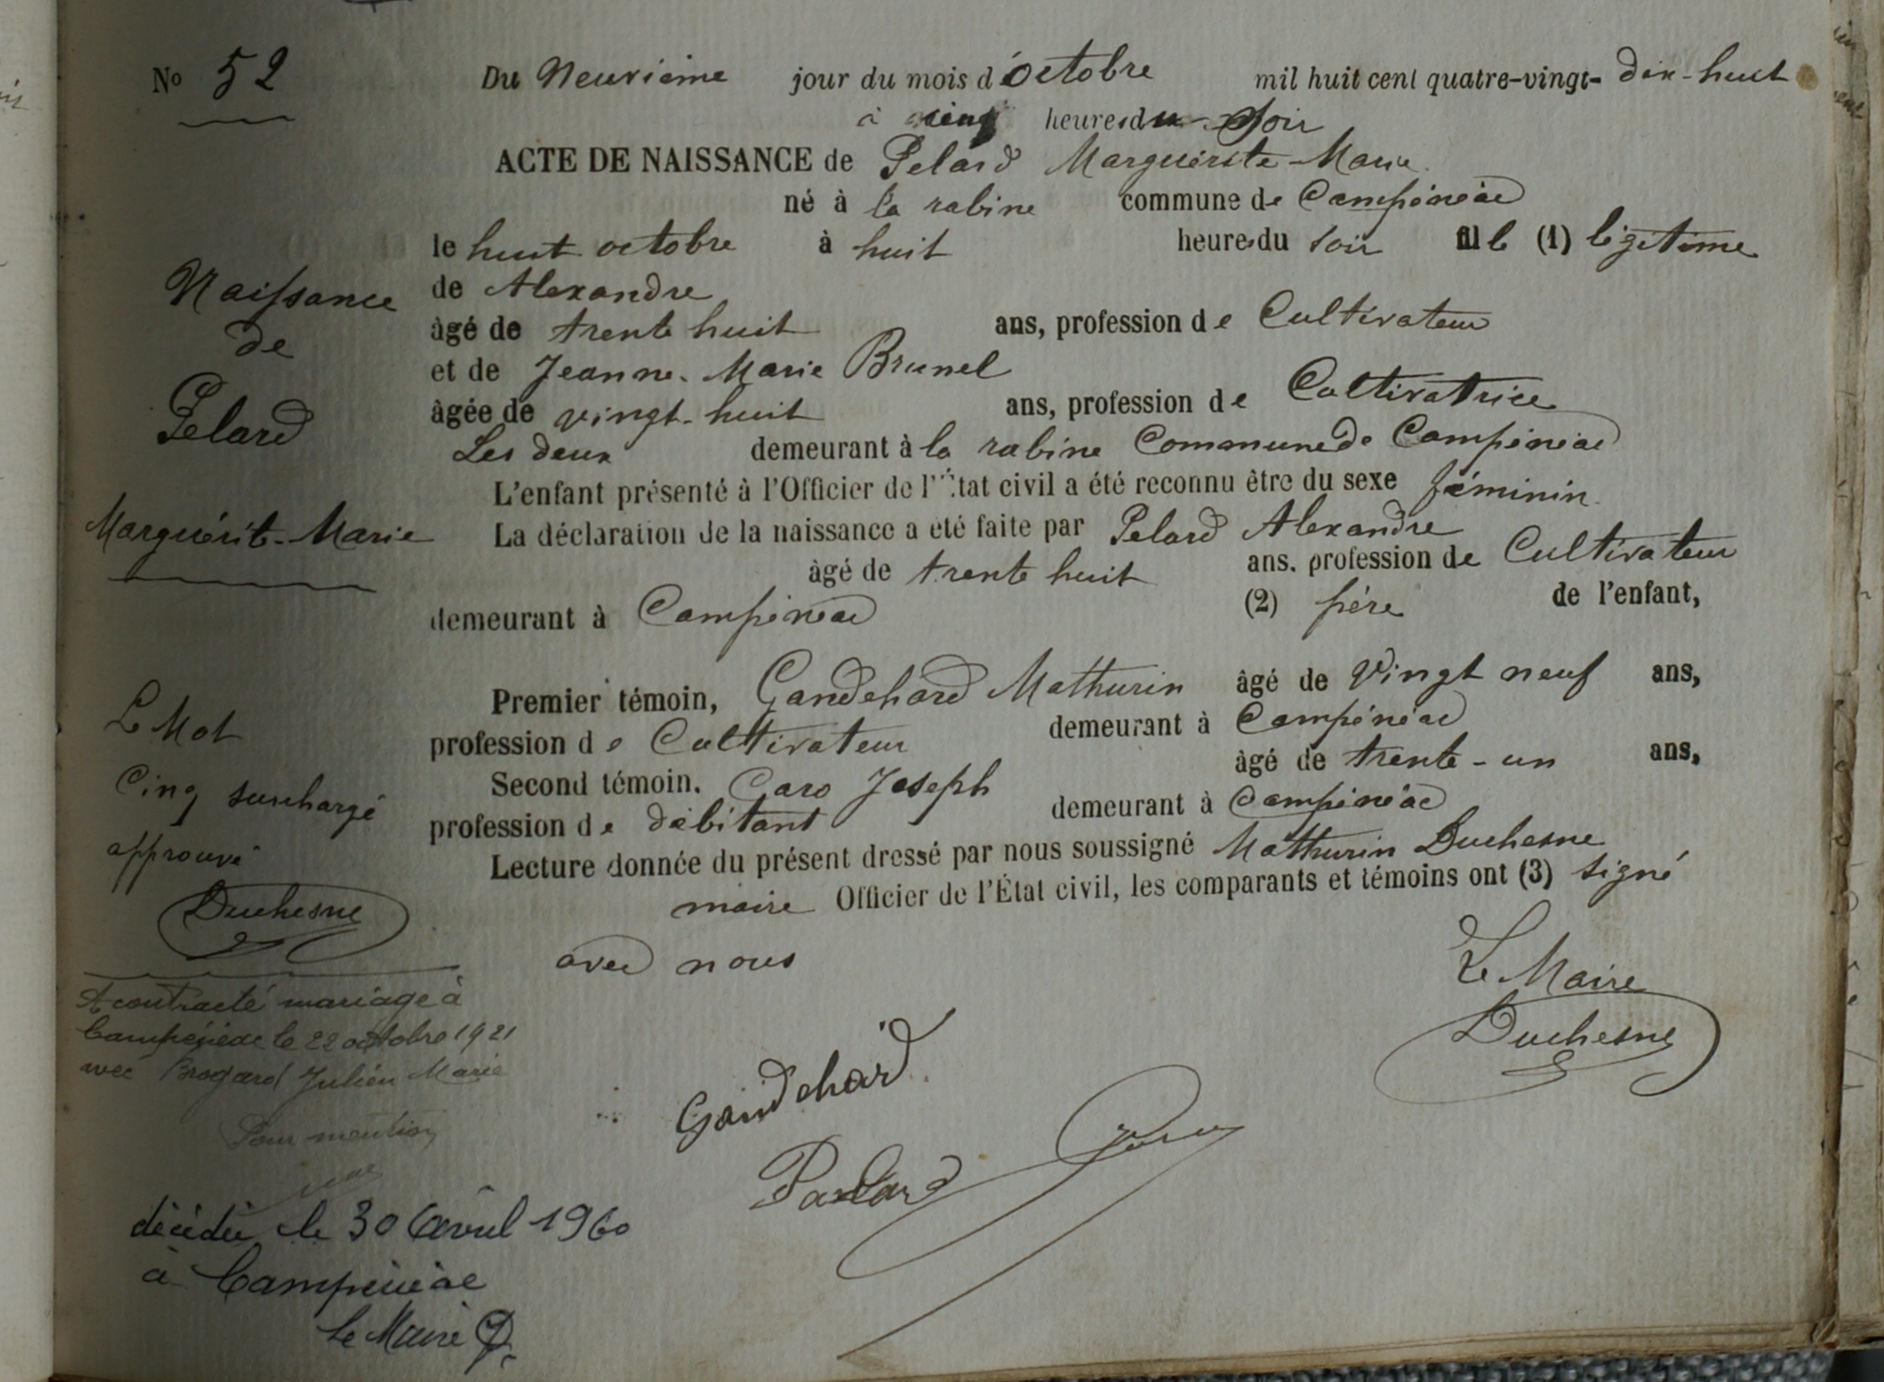 No 52
Du Neuvième jour du mois d'octobre mil huit cent quatre-vingt-dix-huit
à cinq heures du soir
ACTE DE NAISSANCE de Pelard Marguérite-Marie
né à la rabine commune de Campénéac
le huit octobre à huit heures du soir fille (1) légitime
de Alexandre
âgé de trente huit ans, profession de Cultivateur
et de Jeanne-Marie Brunel
âgée de vingt-huit ans, profession de Cultivatrice
Les deux demeurant à la rabine Commune de Campénéac
L'enfant présenté à l'Officier de l'État civil a été reconnu être du sexe féminin
La déclaration de la naissance a été faite par Pelard Alexandre
âgé de trente huit ans, profession de Cultivateur
demeurant à Campénéac (2) père de l'enfant,
Premier témoin, Gandehard Mathurin âgé de Vingt neuf ans,
profession de Cultivateur demeurant à Campénéac
Second témoin, Caro Joseph âgé de trente-un ans,
profession de débitant demeurant à Campénéac
Lecture donnée du présent dressé par nous soussigné Mathurin Duchesne
maire Officier de l'État civil, les comparants et témoins ont (3) signé
avec nous
Le Maire
Duchesne
Gandehard
Naissance
de
Pelard
Marguérite-Marie
Le Mot
Cinq surchargé
approuvé
Duchesne
A contracté mariage à
Campénéac le 22 octobre 1921
avec Brogard Julien Marie
Pour mention
décédée le 30 avril 1960
à Campénéac
Le Maire